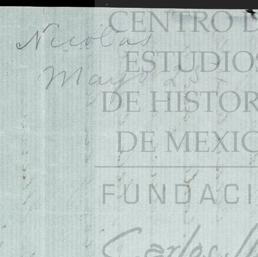 Nicolas
Mayo 25
CENTRO D
ESTUDIOS
DE HISTOR
DE MEXIC
FUNDACI
Carlos